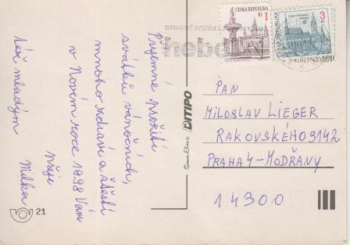 Příjemné prožití
svátků vánočních,
mnoho zdraví a štěstí
v Novém roce 1998 Vám
přeje
Milka
též mladým
ČESKÁ REPUBLIKA
1
3
DITIPO
21
PAN
MILOSLAV LIEGER
RAKOVSKÉHO 3142
PRAHA 4-MODŘANY
14300